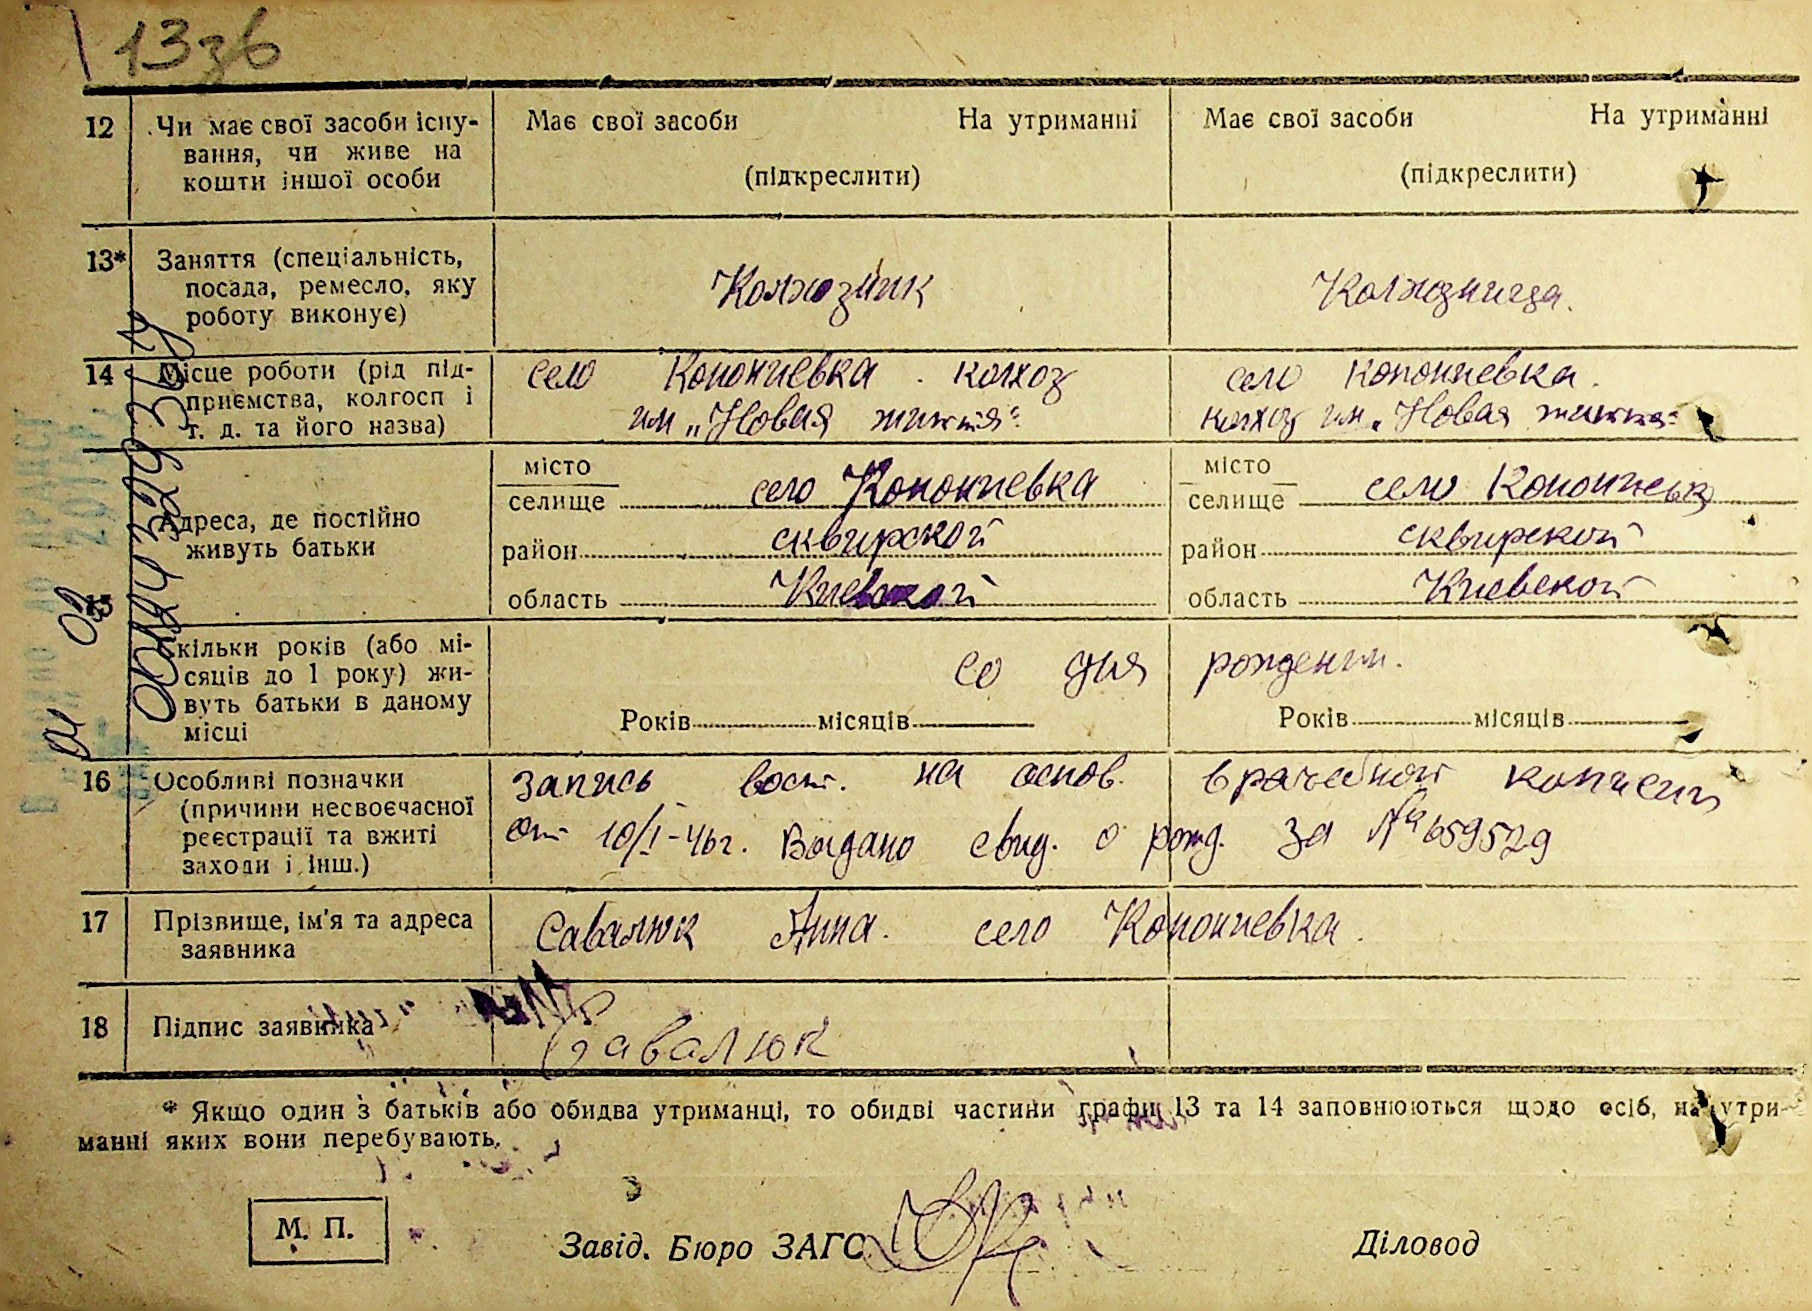 13зв
12 Чи має свої засоби існу- Має свої засоби На утриманні Має свої засоби На утриманні
вання, чи живе на
кошти іншої особи (підкреслити) (підкреслити)
13* Заняття (спеціальність,
посада, ремесло, яку Колхозник Колхозница.
роботу виконує)
14 Місце роботи (рід під- село Конониевка. колхоз село Конониевка.
приємства, колгосп і им „Новая життя“ колхоз им. „Новая життя“
т. д. та його назва)
15 Адреса, де постійно живуть батьки
місто місто
селище село Конониевка селище село
район сквирской район сквирской
область Киевской область Киевской
Скільки років (або мі-
сяців до 1 року) жи- со дня рождении.
вуть батьки в даному
місці Років місяців Років місяців
16 Особливі позначки запись вост. на основ. врачебной
(причини несвоєчасної
реєстрації та вжиті от 10/I-46г. Выдано свид. о рожд. за № 659529
заходи і інш.)
17 Прізвище, ім'я та адреса Савалюк Анна. село Конониевка.
заявника
18 Підпис заявника Савалюк
* Якщо один з батьків або обидва утриманці, то обидві частини графи 13 та 14 заповнюються щодо осіб, на утри-
манні яких вони перебувають.
М. П. Завід. Бюро ЗАГС Діловод